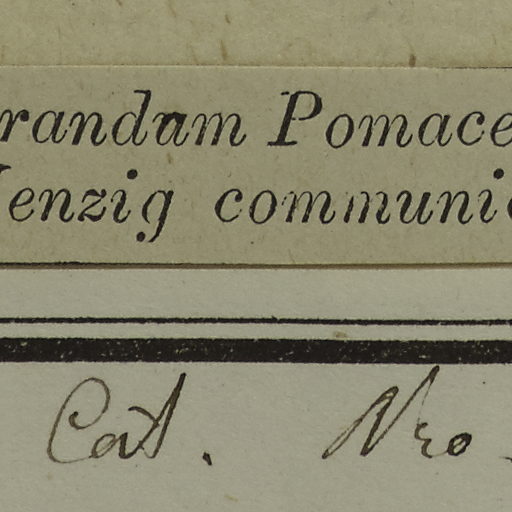 randam Pomace
enzig communi
Cat. Nro.